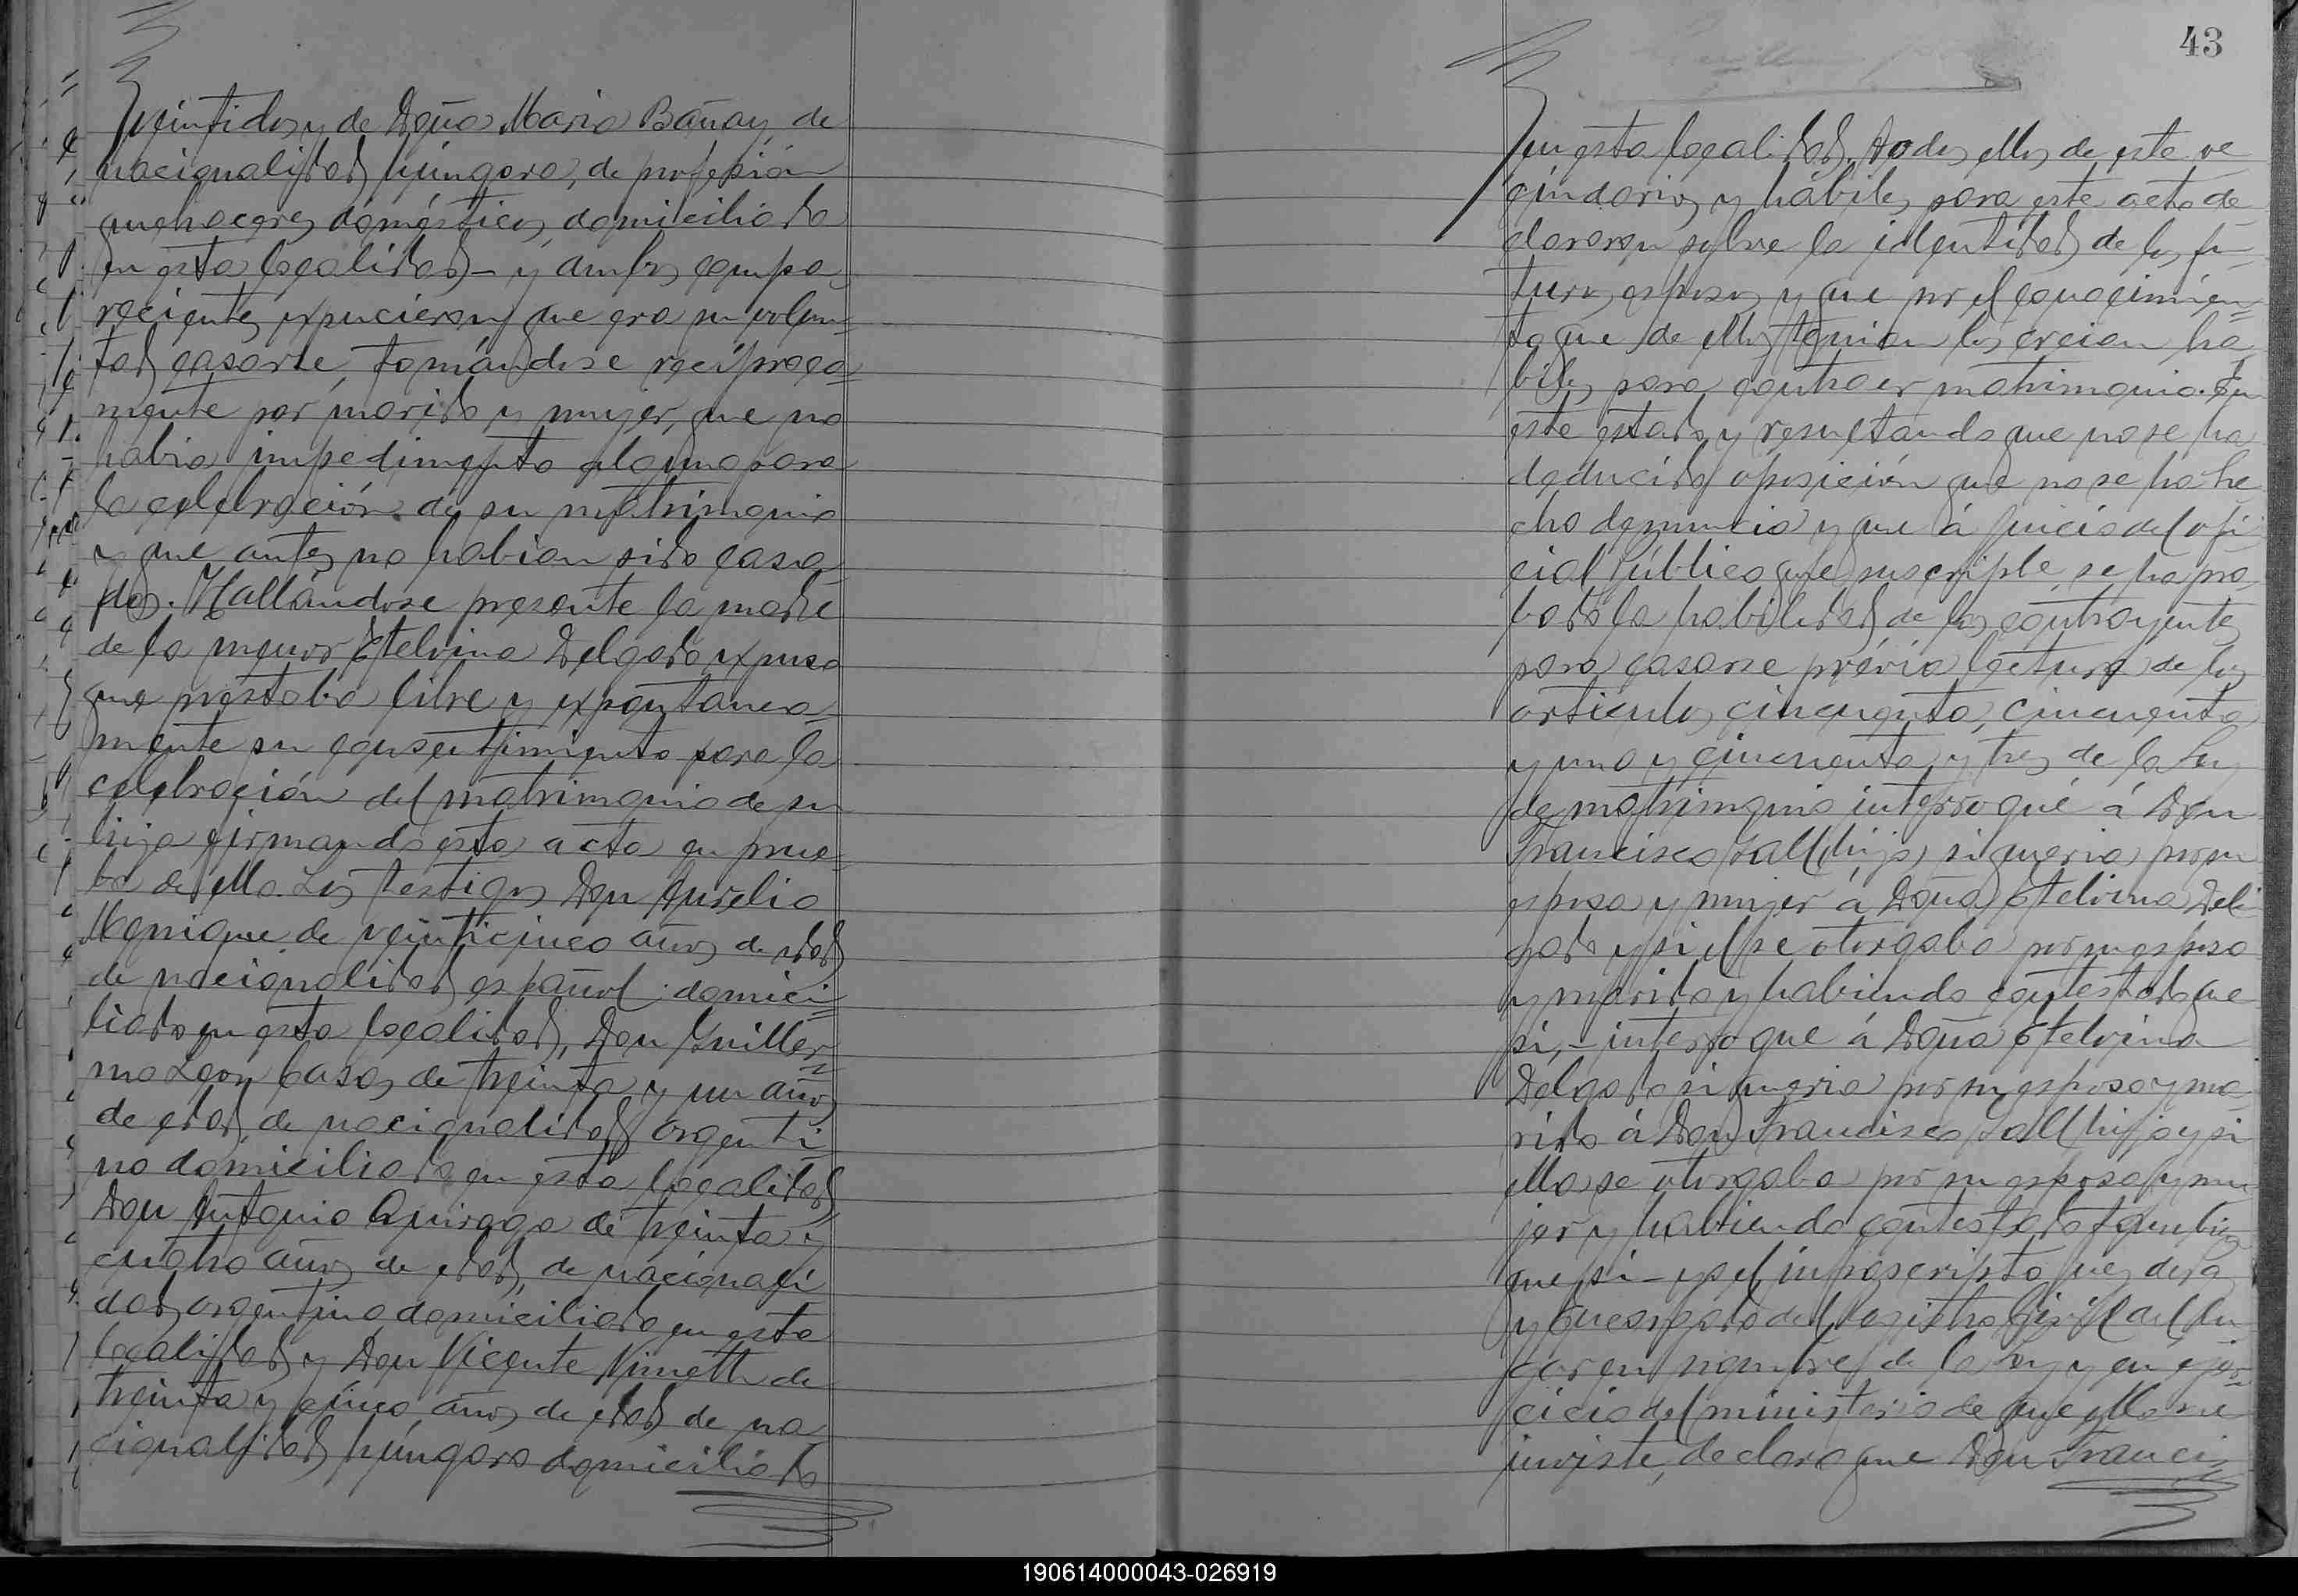 veintidos y de Doña Maria Bañay, de
nacionalidad húngara, de profesión
quehaceres domésticos domiciliada
en esta localidad – y ambos compa
recientes expucieron que era su volun=
tad casarse, tomándose recíproca=
mente por marido y mujer, que no
habia impedimento alguno para
la celebración de su matrimonio
y que antes no habian sido casa
dos. Hallándose presente la madre
de la menor Etelvina Delgado expuso
que prestaba libre y expontanea
mente su consentimiento para la
celebración del matrimonio de su
hija firmando esta acta en prue=
ba de ello. Los testigos Don Aurelio
Menique de veinticinco años de edad
de nacionalidad español domici=
liado en esta localidad, Don Guiller=
mo Leon Casas de treinta y un años
de edad, de nacionalidad argenti
no domiciliado en esta localidad
Don Antonio Quiroga de treinta y
cuatro años de edad, de nacionali
dad argentino domiciliado en esta
localidad y Don Vicente Nimeth de
treinta y cinco años de edad de na
cionalidad húngaro domiciliado
43
en esta localidad, todos ellos de este ve
cindario y hábiles para este acto de
clararon sobre la identidad de los fu
turos esposos y que por el conocimien=
to que de ellos tenian los creian ha
biles para contraer matrimonio. En
este estado y resultando que no se ha
deducido oposición que no se ha he
cho denuncia y que á juicio del ofi
cial público que suscribe, se ha pro
bado la habilidad de los contrayentes
para casarse prévia lectura de los
articulos cincuenta, cincuenta
y uno y cincuenta y tres de la Ley
de matrimonio interrogué á Don
Francisco Gall (hijo) si queria por su
esposa y mujer á Doña Etelvina Del
gado y si el se otorgaba por su esposo
y marido y habiendo contestado que
si, – interrogue á Doña Etelvina
Delgado si queria por su esposo y ma
rido á Don Francisco Gall hijo y si
ella se otorgaba por su esposa y mu
jer y habiendo contestado tambien
que si – yo el infrascripto juez de paz
y encargado del registro civil del lu
gar en nombre de la ley y en ejer=
cicio del ministerio de que ella me
inviste, declaro que Don Franci